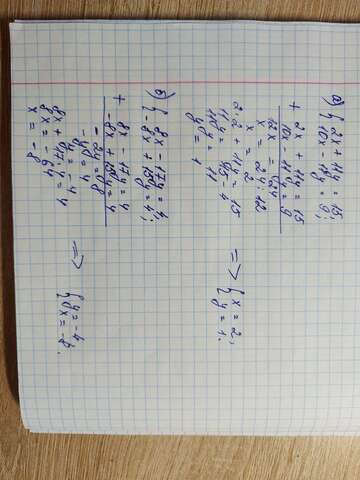 а) { 2x + 11y = 15;
10x - 11y = 9;
+ 2x + 11y = 15
10x - 11y = 9
12x = 24
x = 24 : 12
x = 2
2·2 + 11y = 15
11y = 15 - 4
11y = 11
y = 1
=> { x = 2,
y = 1.
б) { 8x - 17y = 4;
-8x + 15y = 4;
+ 8x - 17y = 4
-8x + 15y = 4
-2y = 8
-y = 4
y = -4
8x + 17·4 = 4
8x = -64
x = -8
=> { y = -4;
x = -8.